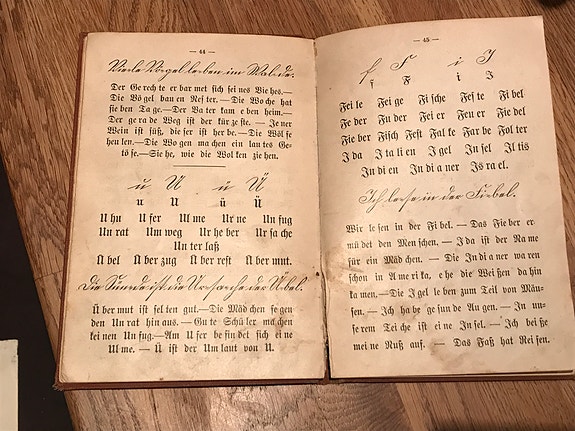 — 44 —
Viele Vögel leben im Walde.
Der Ge rech te er bar met sich sei nes Vie hes.—
Die Vö gel bau en Nes ter. — Die Wo che hat
sie ben Ta ge. — Der Va ter kam e ben heim.—
Der ge ra de Weg ist der kür ze ste. — Je ner
Wein ist süß, die ser ist her be. — Die Wöl fe
heu len.—Die Wo gen ma chen ein lau tes Ge-
tö se.—Sie he, wie die Wol ken zie hen.
u U ü Ü
u U ü Ü
U hu U fer Ul me Ur ne Un fug
Un rat Um weg Ur he ber Ur sa che
Un ter laß
Ü bel Ü ber zug Ü ber rest Ü ber mut.
Die Sünde ist die Ursache der Übel.
Ü ber mut ist sel ten gut.—Die Mäd chen fe gen
den Un rat hin aus. — Gu te Schü ler ma chen
kei nen Un fug.—Am U fer be fin det sich ei ne
Ul me. — Ü ist der Um laut von U.
— 45 —
f F i I
f F i I
Fei le Fei ge Fi sche Fes te Fi bel
Fe der Fu der Fei er Fen er Fie del
Fie ber Fisch Fest Fal ke Far be Fol ter
I da I ta li en I gel In sel Il tis
In di en In di a ner Is ra el.
Ich lese in der Fiebel.
Wir le sen in der Fi bel. — Das Fie ber er
mü det den Men schen. — I da ist der Na me
für ein Mäd chen. — Die In di a ner wa ren
schon in A me ri ka, e he die Wei ßen da hin
ka men.—Die I gel le ben zum Teil von Mäu-
sen. — Ich ha be ge sun de Au gen. — In un-
se rem Tei che ist ei ne In sel. — Ich bei ße
mei ne Nuß auf. — Das Faß hat Rei fen.